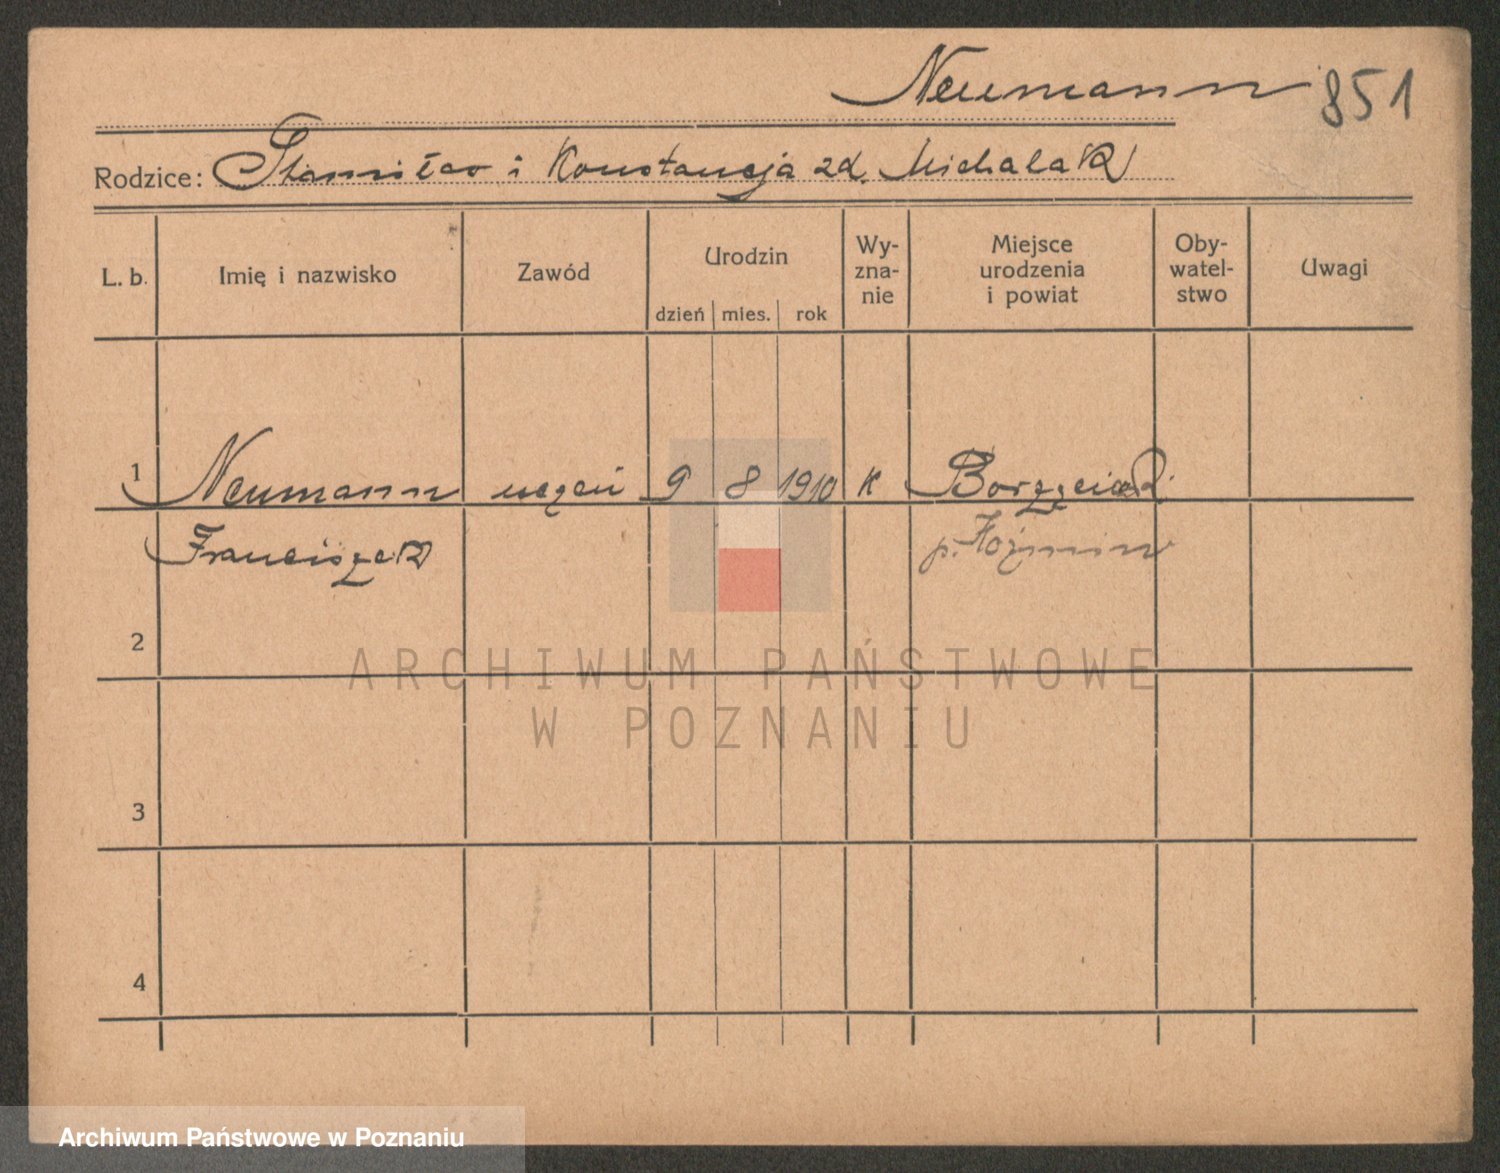 Neumann 851
Rodzice: Stanisław i Konstancja zd. Michalak
L. b. Imię i nazwisko Zawód Urodzin Wy-zna-nie Miejsce urodzenia i powiat Oby-watel-stwo Uwagi
dzień mies. rok
1 Neumann uczeń 9 8 1910 K Borzęciek
Franciszek p. Koźmin
2
ARCHIWUM PAŃSTWOWE
W POZNANIU
3
4
Archiwum Państwowe w Poznaniu